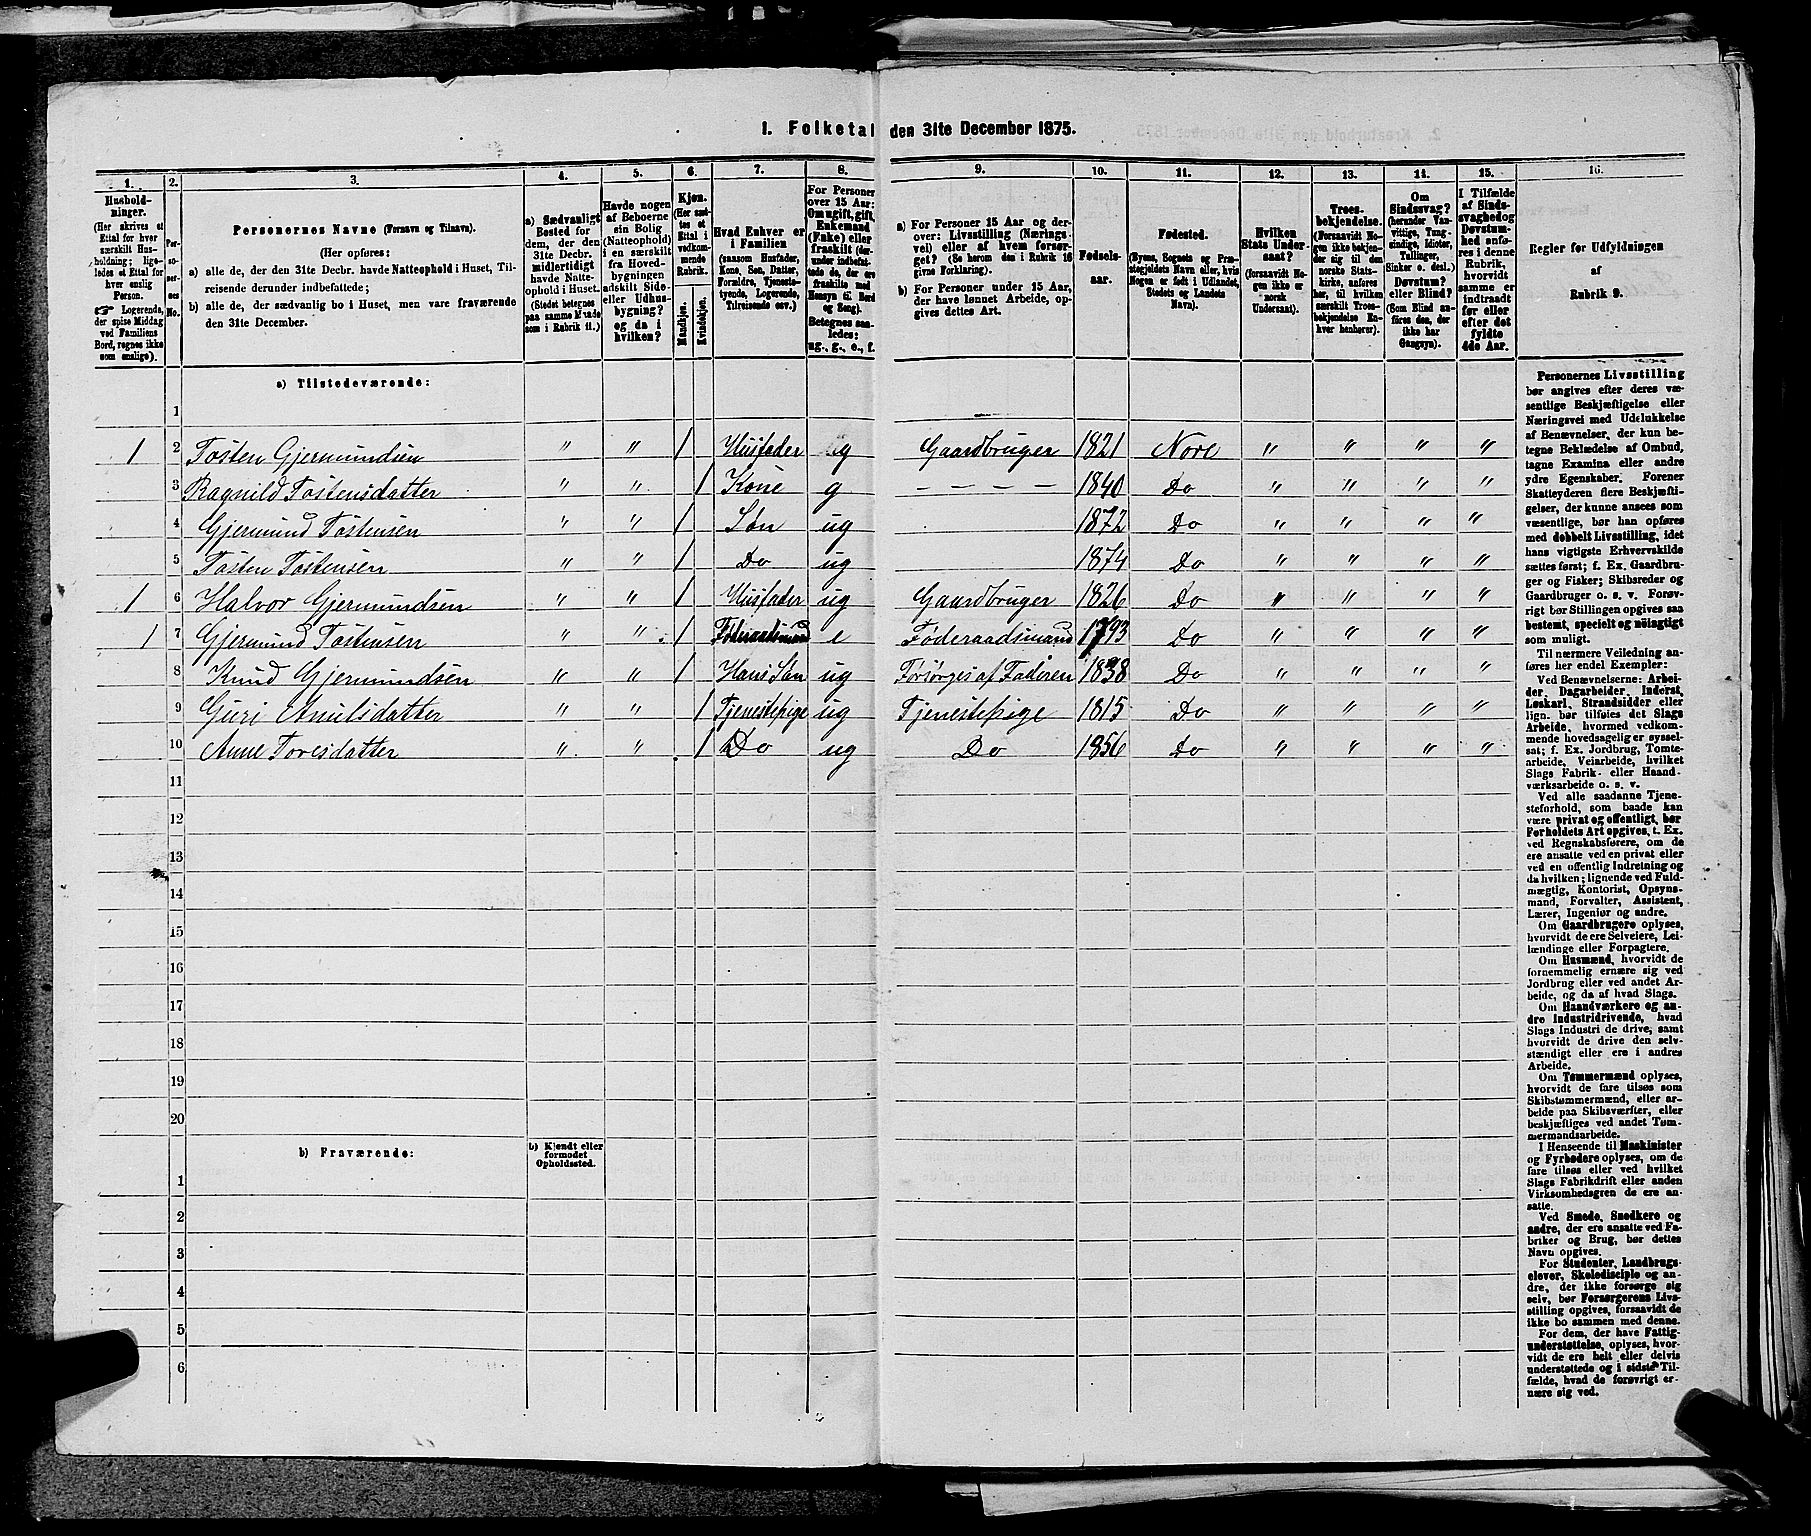 1. Folketal den 31te December 1875.
1.
2.
3.
4.
5.
6.
7.
8.
9.
10.
11.
12.
13.
14.
15.
16.
Husholdninger.
(Her skrives et
Ettal for hver
særskilt Husholdning;
ligeledes et Ettal for
hver enslig
Person.
☛ Logerende,
der spise Middag
ved Familiens
Bord, regnes ikke
som enslige).
Personernes No.
Personernes Navne (Fornavn og Tilnavn).
(Her opføres:
a) alle de, der den 31te Decbr. havde Natteophold i Huset, Tilreisende derunder indbefattede;
b) alle de, der sædvanlig bo i Huset, men vare fraværende
den 31te December.
a) Sædvanligt
Bosted for
dem, der den
31te Decbr.
midlertidigt
havde Natteophold i Huset.
(Stedet betegnes
paa samme Maade
som i Rubrik 11.)
Havde nogen
af Beboerne
sin Bolig
(Natteophold)
i en særskilt
fra Hovedbygningen
adskilt Side- eller Udhusbygning?
og da i
hvilken?
Kjøn.
(Her sættes et
Ettal i
vedkommende
Rubrik.
Mandkjøn.
Kvindekjøn.
Hvad Enhver er
i Familien
(saasom Husfader,
Kone, Søn, Datter,
Forældre, Tjenestetyende, Logerende,
Tilreisende osv.)
For Personer
over 15 Aar:
Om ugift, gift,
Enkemand
(Enke) eller
fraskilt (derunder indbefattede de, der ere
fraskilte med
Hensyn til Bord
og Seng).
Betegnes saaledes:
ug., g., e., f.
a) For Personer 15 Aar og derover: Livsstilling (Næringsvei) eller af hvem forsørget? (Se herom den i Rubrik 16
givne Forklaring).
b) For Personer under 15 Aar,
der have lønnet Arbeide, opgives dettes Art.
Fødselsaar.
Fødested.
(Byens, Sognets og Præstegjeldets Navn eller, hvis
Nogen er født i Udlandet,
Stedets og Landets
Navn).
Hvilken
Stats Undersaat?
(forsaavidt Nogen ikke er
norsk
Undersaat).
Troesbekjendelse.
(Forsaavidt Nogen ikke bekjender sig til den
norske Statskirke, anføres
her, til hvilken
særskilt Troesbekjendelse Enhver henhører).
Om
Sindssvag?
(herunder Vanvittige, Tungsindige, Idioter,
Tullinger,
Sinker o. desl.)
Døvstum?
eller Blind?
(Som Blind anføres den, der
ikke har
Gangsyn).
I Tilfælde
af Sindssvaghed og
Døvstumhed anføres i denne
Rubrik,
hvorvidt
samme er
indtraadt
før eller
efter det
fyldte
4de Aar.
Regler for Udfyldningen
af
Rubrik 9.
a) Tilstedeværende:
1
1 2 Tosten Gjermundsen " " 1 Husfader ug Gaardbruger 1821 Nore " " " "
3 Ragnild Tostensdatter " " 1 Kone g – – – – 1840 Do " " " "
4 Gjermund Tostensen " " 1 Søn ug 1872 Do " " " "
5 Tosten Tostensen " " 1 Do ug 1874 Do " " " "
1 6 Halvor Gjermundsen " " 1 Husfader ug Gaardbruger 1826 Do " " " "
1 7 Gjermund Tostensen " " 1 Føderaadsmand e Føderaadsmand 1793 Do " " " "
8 Knud Gjermundsen " " 1 Hans Søn ug Forsørges af Faderen 1838 Do " " " "
9 Guri Amilsdatter " " 1 Tjenestepige ug Tjenestepige 1815 Do " " " "
10 Anne Toresdatter " " 1 Do ug Do 1856 Do " " " "
11
12
13
14
15
16
17
18
19
20
b) Fraværende:
b) Kjendt eller
formodet
Opholdssted.
1
2
3
4
5
6
Personernes Livsstilling
bør angives efter deres væsentlige Beskjæftigelse eller
Næringsvei med Udelukkelse
af Benævnelser, der kun betegne Beklædelse af Ombud,
tagne Examina eller andre
ydre Egenskaber. Forener
Skatteyderen flere Beskjæftigelser, der kunne ansees som
væsentlige, bør han opføres
med dobbelt Livsstilling, idet
hans vigtigste Erhvervskilde
sættes først; f. Ex. Gaardbruger og Fisker; Skibsreder og
Gaardbruger o. s. v. Forøvrigt bør Stillingen opgives saa
bestemt, specielt og nøiagtigt
som muligt.
Til nærmere Veiledning anføres her endel Exempler:
Ved Benævnelserne: Arbeider, Dagarbeider, Inderst,
Løskarl, Strandsidder eller
lign. bør tilføies det Slags
Arbeide, hvormed vedkommende hovedsagelig er sysselsat; f. Ex. Jordbrug, Tomtearbeide, Veiarbeide, hvilket
Slags Fabrik- eller Haandværksarbeide o. s. v.
Ved alle saadanne Tjenesteforhold, som baade kan
være privat og offentligt, bør
Forholdets Art opgives, t. Ex.
ved Regnskabsførere, om de
ere ansatte ved en privat eller
ved en offentlig Indretning og
da hvilken; lignende ved Fuldmægtig, Kontorist, Opsynsmand, Forvalter, Assistent,
Lærer, Ingeniør og andre.
Om Gaardbrugere oplyses,
hvorvidt de ere Selveiere, Leilændinge eller Forpagtere.
Om Husmænd, hvorvidt de
fornemmelig ernære sig ved
Jordbrug eller ved andet Arbeide, og da af hvad Slags.
Om Haandværkere og andre Industridrivende, hvad
Slags Industri de drive, samt
hvorvidt de drive den selvstændigt eller ere i andres
Arbeide.
Om Tømmermænd oplyses,
hvorvidt de fare tilsøs som
Skibstømmermænd, eller arbeide paa Skibsværfter, eller
beskjæftiges ved andet Tømmermandsarbeide.
I Henseende til Maskinister
og Fyrbødere oplyses, om de
fare tilsøs eller ved hvilket
Slags Fabrikdrift eller anden
Virksomhedsgren de ere ansatte.
Ved Smede, Snedkere og
andre, der ere ansatte ved Fabriker og Brug, bør dettes
Navn opgives.
For Studenter, Landbrugselever, Skoledisciple og andre, der ikke forsørge sig
selv, bør Forsørgerens Livsstilling opgives, forsaavidt de
ikke bo sammen med denne.
For dem, der have Fattigunderstøttelse, oplyses, hvorvidt de ere helt eller delvis
understøttede og i sidste Tilfælde, hvad de forøvrigt ernære sig ved.